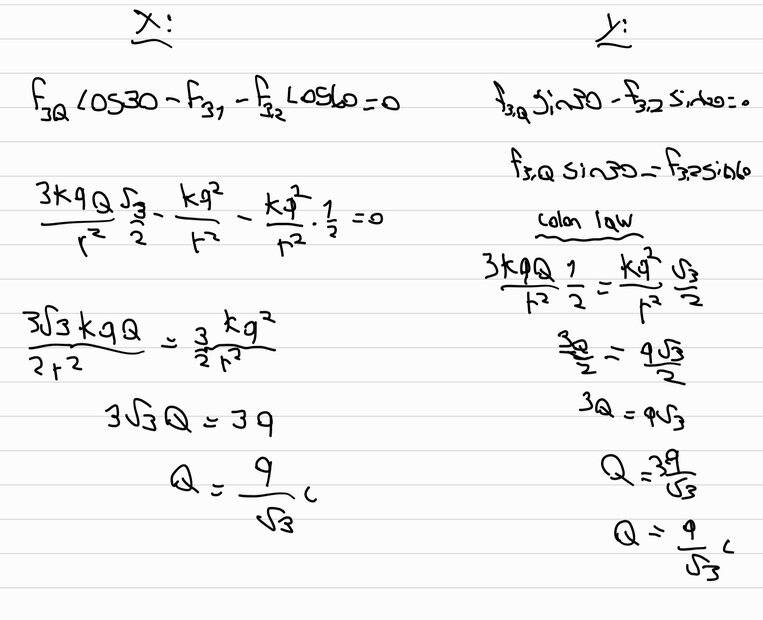 X:
f₃Q cos30 - F₃₁ - f₃₂ cos60 = 0
3kqQ/r² √3/2 - kq²/r² - kq²/r² · 1/2 = 0
3√3kqQ/2r² = 3/2 kq²/r²
3√3Q = 3q
Q = q/√3 c
y:
f₃,Q sin30 - f₃,₂ sin60 = 0
f₃,Q sin30 = f₃,₂ sin60
colon law
3kqQ/r² 1/2 = kq²/r² √3/2
3Q/2 = q√3/2
3Q = q√3
Q = 3q/√3
Q = q/√3 c